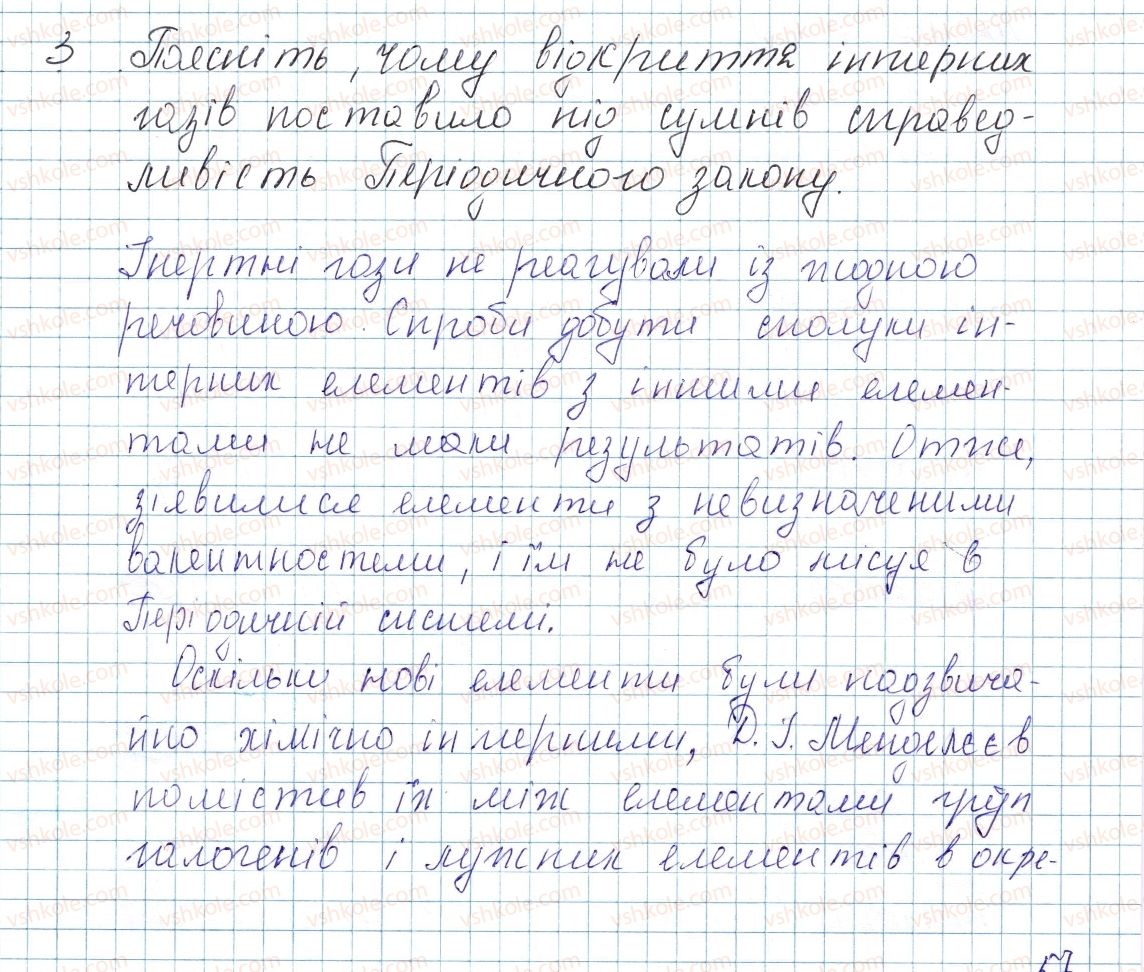 3 Поясніть, чому відкриття інтерних
газів поставило під сумнів справед-
ливість Періодичного закону.
Інертні гази не реагували із жодною
речовиною. Спроби добути сполуки ін-
терних елементів з іншими елемен-
тами не мали результатів. Отже,
з'явилися елементи з невизначеними
валентностями, і їм не було місця в
Періодичній системі.
Оскільки нові елементи були надзвича-
йно хімічно інтерними, Д. І. Менделєєв
помістив їх між елементами груп
галогенів і лужних елементів в окре-